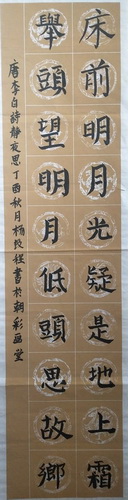 床前明月光疑是地上霜
舉頭望明月低頭思故鄉
唐李白詩靜夜思丁酉秋月楊段程書於朝彩畫堂